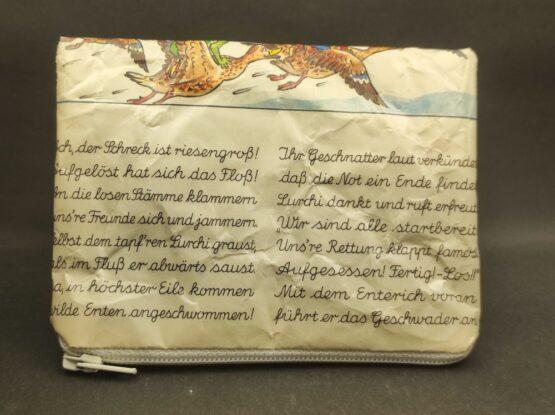 ch, der Schreck ist riesengroß!
ufgelöst hat sich das Floß!
n die losen Stämme klammern
uns're Freunde sich und jammern.
elbst dem tapf'ren Lurchi graust,
als im Fluß er abwärts saust.
a, in höchster Eile kommen
wilde Enten angeschwommen!
Ihr Geschnatter laut verkünde
daß die Not ein Ende finde
Lurchi dankt und ruft erfreut
"Wir sind alle startbereit
Uns're Rettung klappt famos
Aufgesessen! Fertig!-Los!!"
Mit dem Enterich voran
führt er das Geschwader an